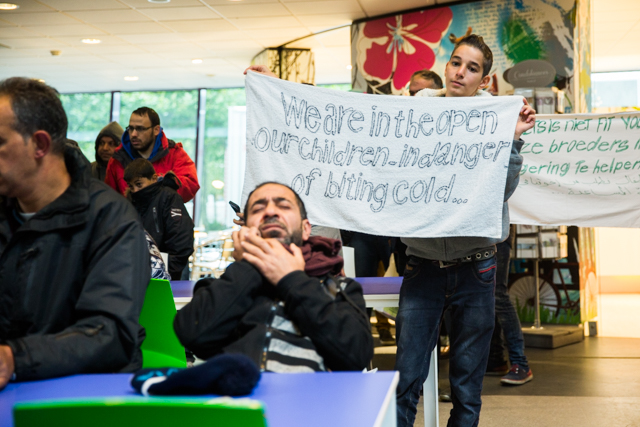 We are in the open
our children-indanger
of biting cold...
broeders
Te helpen